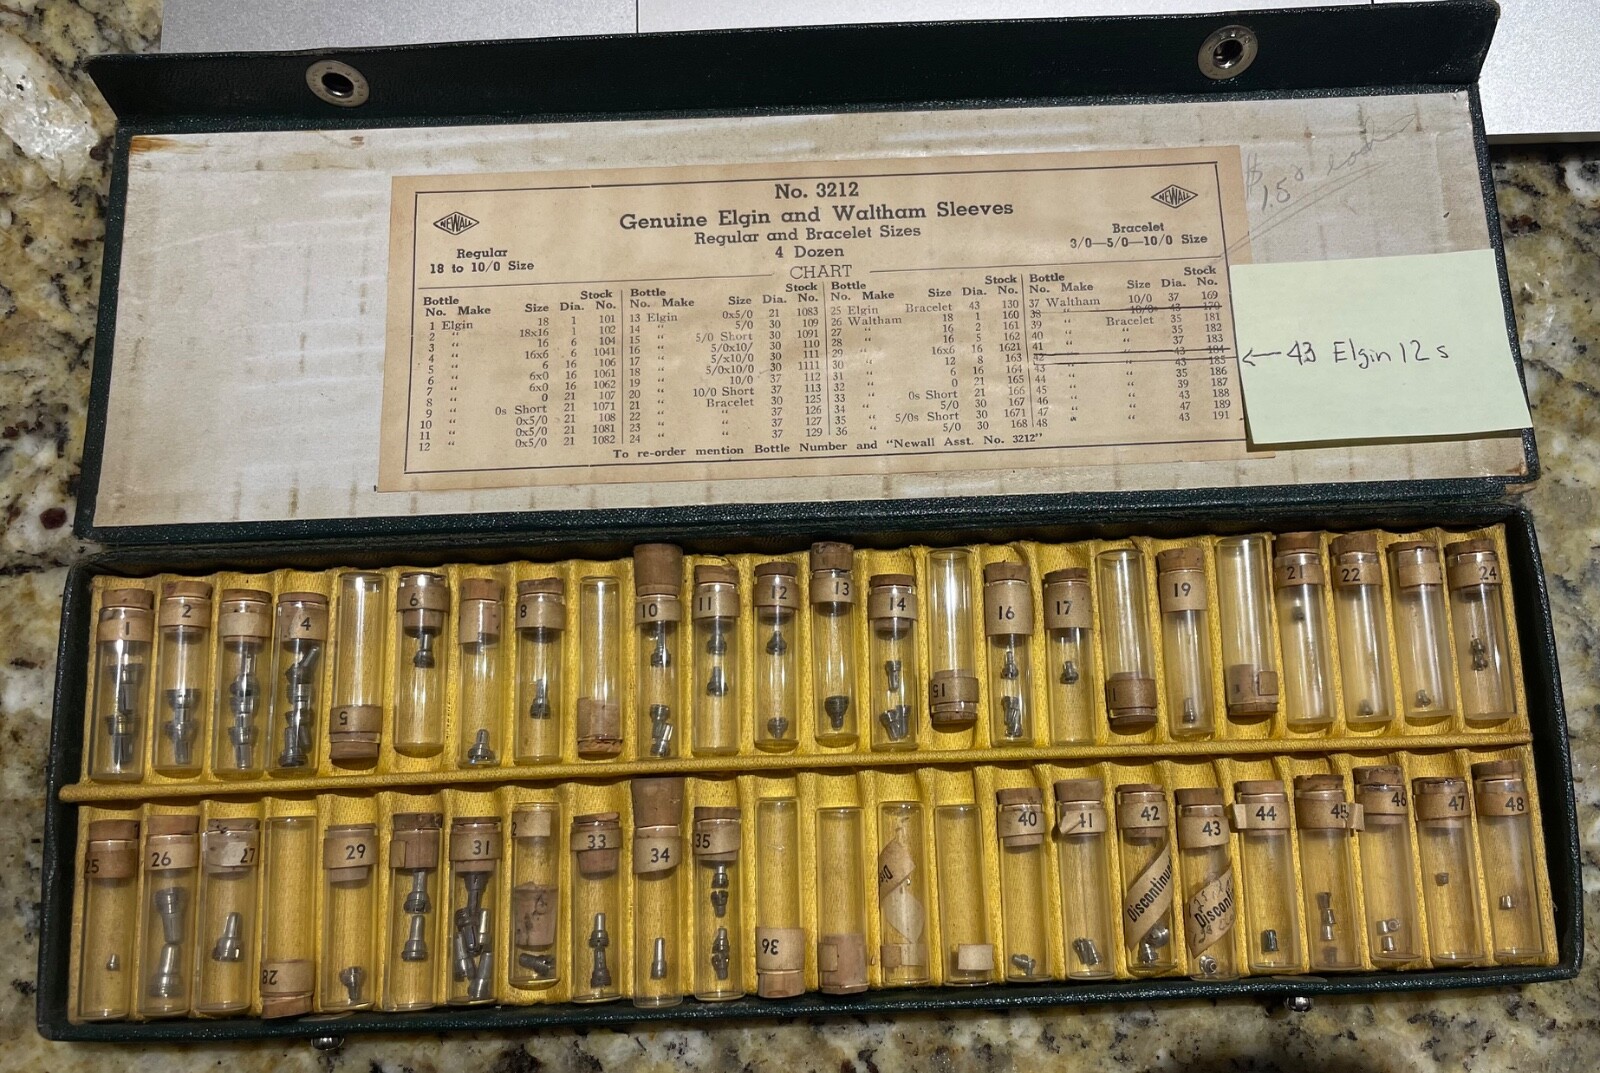 No. 3212
NEWALL
NEWALL
Genuine Elgin and Waltham Sleeves
Regular and Bracelet Sizes
4 Dozen
Regular
18 to 10/0 Size
Bracelet
3/0—5/0—10/0 Size
CHART
Bottle No. Make Size Dia. Stock No.
1 Elgin 18 1 101
2 " 18x16 1 102
3 " 16 6 104
4 " 16x6 6 1041
5 " 6 16 106
6 " 6x0 16 1061
7 " 6x0 16 1062
8 " 0 21 107
9 " 0s Short 21 1071
10 " 0x5/0 21 108
11 " 0x5/0 21 1081
12 " 0x5/0 21 1082
Bottle No. Make Size Dia. Stock No.
13 Elgin 0x5/0 21 1083
14 " 5/0 30 109
15 " 5/0 Short 30 1091
16 " 5/0x10/ 30 110
17 " 5/x10/0 30 111
18 " 5/0x10/0 30 1111
19 " 10/0 37 112
20 " 10/0 Short 37 113
21 " Bracelet 30 125
22 " " 37 126
23 " " 37 127
24 " " 37 129
Bottle No. Make Size Dia. Stock No.
25 Elgin Bracelet 43 130
26 Waltham 18 1 160
27 " 16 2 161
28 " 16 5 162
29 " 16x6 16 1621
30 " 12 8 163
31 " 6 16 164
32 " 0 21 165
33 " 0s Short 21 166
34 " 5/0 30 167
35 " 5/0s Short 30 1671
36 " 5/0 30 168
Bottle No. Make Size Dia. Stock No.
37 Waltham 10/0 37 169
38 " 10/0 170
39 " Bracelet 35 181
40 " " 35 182
41 " " 37 183
42 " " 43 184
43 " " 43 185
44 " " 35 186
45 " " 39 187
46 " " 43 188
47 " " 47 189
48 " " 43 191
To re-order mention Bottle Number and "Newall Asst. No. 3212"
← 43 Elgin 12s
1 2 4 5 6 8 10 11 12 13 14 15 16 17 1 19 21 22 24
25 26 27 28 29 31 33 34 35 36 40 41 42 43 44 45 46 47 48
Discontinu
Discon